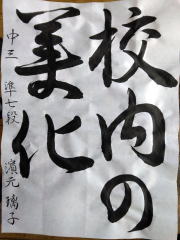 校内の
美化
中三 準七段 濱元璃子